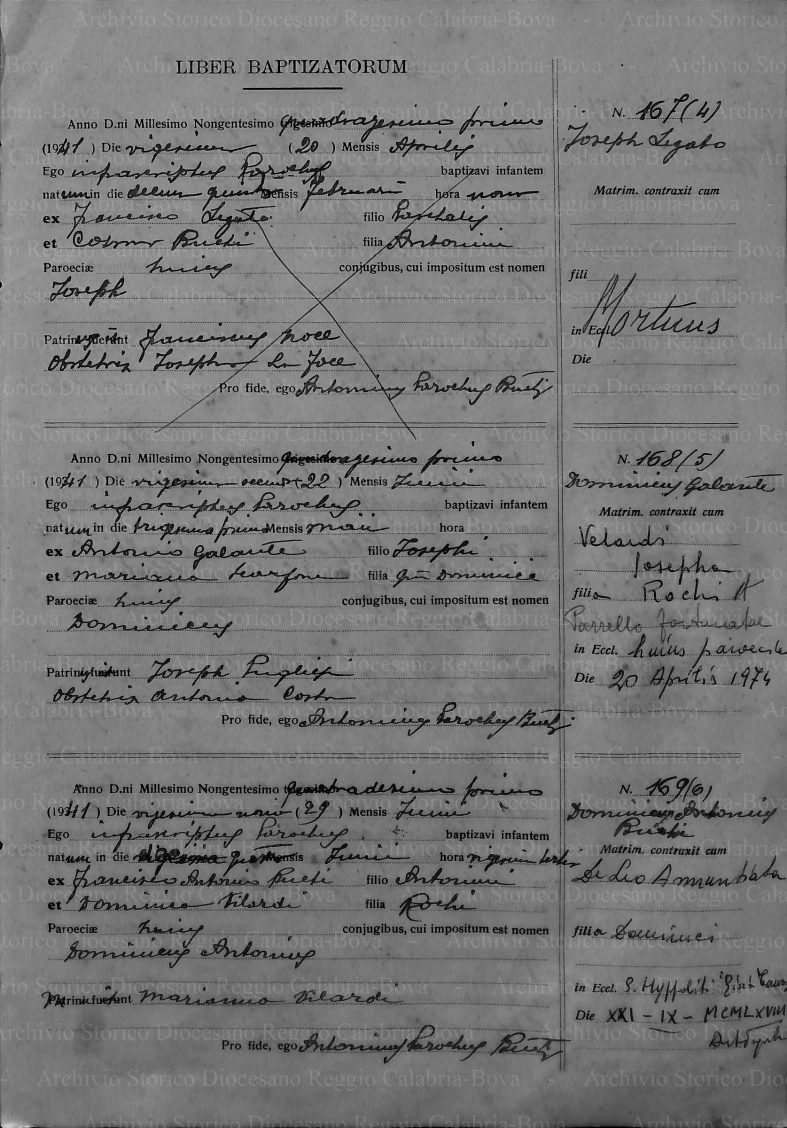 LIBER BAPTIZATORUM
N. 167(4)
Joseph Legato
Anno D.ni Millesimo Nongentesimo quadragesimo primo
(1941) Die vigesimo (20) Mensis Aprilis
Ego infrascriptus Parochus baptizavi infantem
natum in die decimo quinto Mensis Februarii hora nona
ex Francisco Legato filio
et Rueti filia Antonini
Paroeciæ huius conjugibus, cui impositum est nomen
Joseph
Patrini fuerunt Franciscus Noce
Obstetrix Josepha
Pro fide, ego Antoninus Parochus
Matrim. contraxit cum
fili
in Eccl.
Mortuus
Die
N. 168(5)
Dominicus Galante
Anno D.ni Millesimo Nongentesimo quadragesimo primo
(1941) Die vigesimo secundo (22) Mensis Junii
Ego infrascriptus Parochus baptizavi infantem
natum in die trigesimo primo Mensis Maii hora
ex Antonio Galante filio Josephi
et Marianna Scarfone filia Dominici
Paroeciæ huius conjugibus, cui impositum est nomen
Dominicus
Patrini fuerunt Joseph Pugliesi
Obstetrix Antonia Costa
Pro fide, ego Antoninus Parochus
Matrim. contraxit cum
Velardi
Josepha
filia Rochi et
Parrello Fortunatae
in Eccl. huius paroeciae
Die 20 Aprilis 1974
N. 169(6)
Dominicus Antonius
Rueti
Anno D.ni Millesimo Nongentesimo quadragesimo primo
(1941) Die vigesimo nono (29) Mensis Junii
Ego infrascriptus Parochus baptizavi infantem
natum in die Mensis Junii hora vigesima tertia
ex Francisco Antonio Rueti filio Antonini
et Dominica Vilardi filia Rochi
Paroeciæ huius conjugibus, cui impositum est nomen
Dominicus Antonius
Patrini fuerunt Marianna Vilardi
Pro fide, ego Antoninus Parochus
Matrim. contraxit cum
De Leo Annunziata
filia Dominici
in Eccl. S. Hyppoliti
Die XXI - IX - MCMLXVIII
Archivio Storico Diocesano Reggio Calabria-Bova